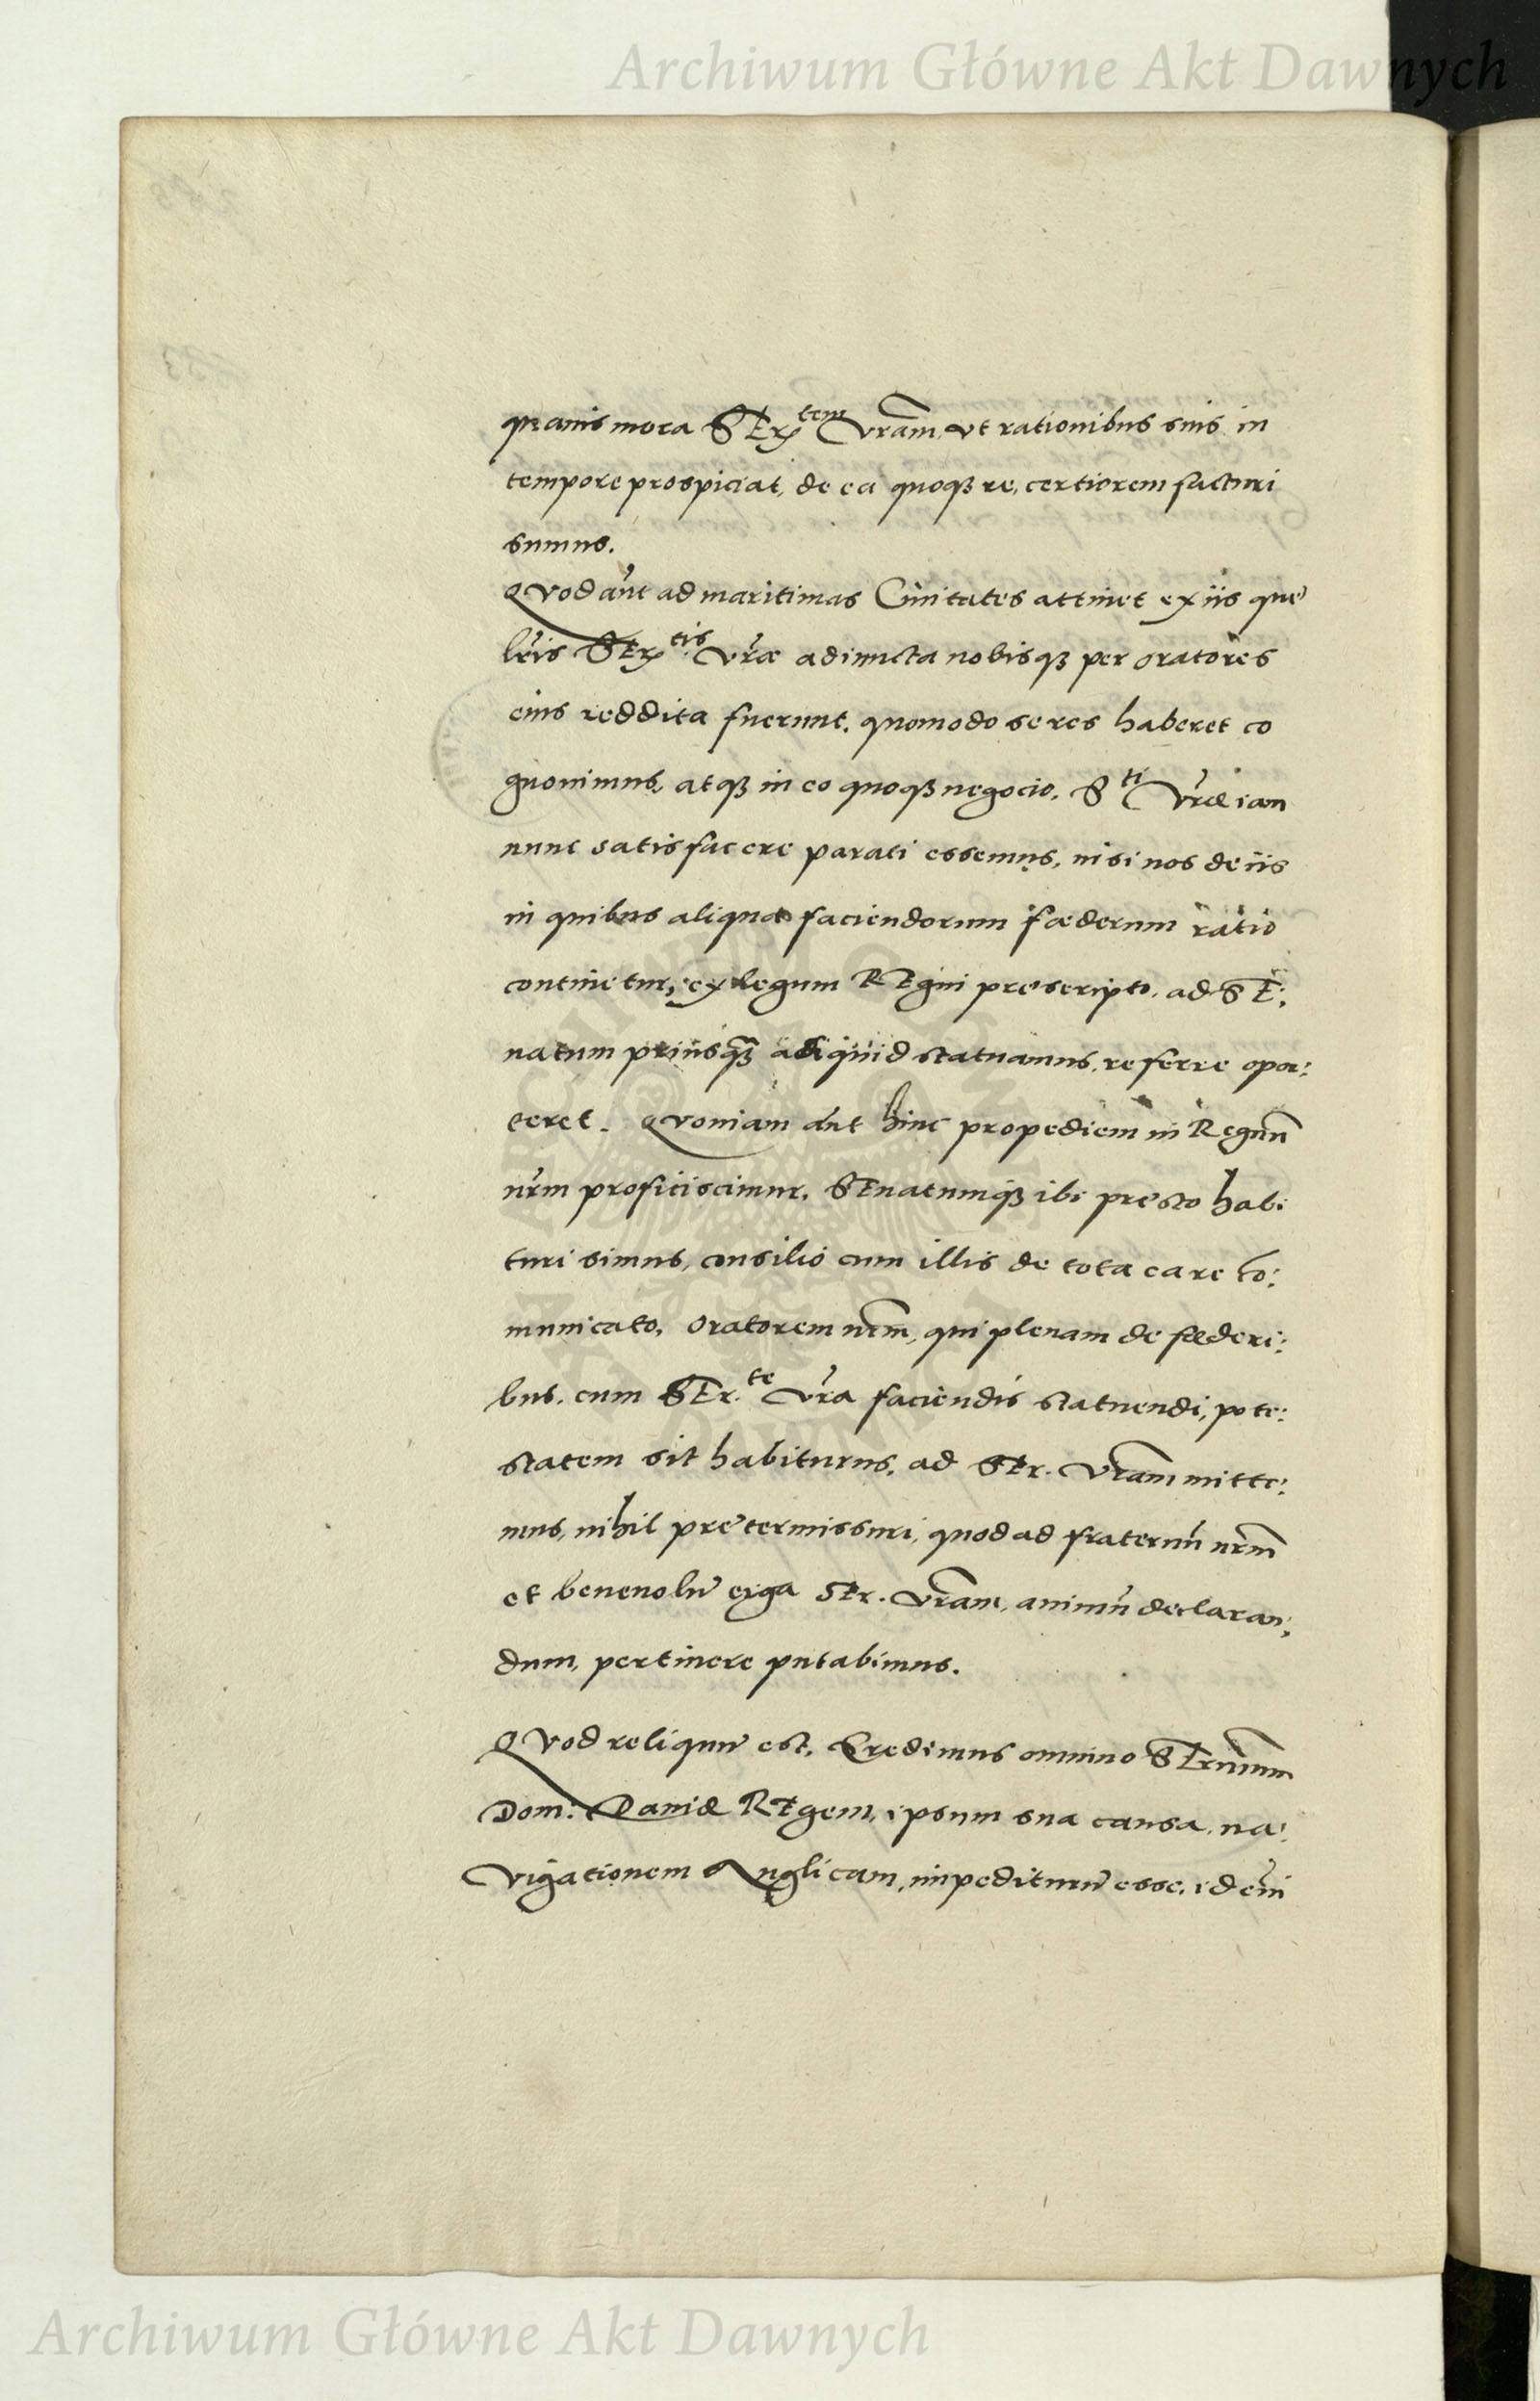 Archiwum Główne Akt Dawnych
quanis mora SEr^tem vram, vt rationibus suis in
tempore prospiciat, de ea quoqȝ re, certiorem facturi
sumus.
QVod aut ad maritimas Ciuitates attinet ex iis que
lris SEr^tis vræ adiuncta nobisqȝ per oratores
eius reddita fuerunt, quomodo se res haberet co
gnouimus, atqȝ in eo quoqȝ negocio, S^ti Vræ iam
nunc satisfacere parati essemus, nisi nos de iis
in quibus aliqua faciendorum fæderum ratio
continetur, ex legum REgni prescripto, ad SE:
natum priusqȝ aliquid statuamus, referre opor:
teret. QVoniam aut hinc propediem in Regnu
nrm proficiscimur, SEnatumqȝ ibi presto habi
turi simus, consilio cum illis de tota ea re co:
municato, oratorem nrm, qui plenam de fæderi:
bus, cum SEr.^te vra faciendis statuendi, pote:
statem sit habiturus, ad SEr. vram mitte:
mus, nihil pretermissuri, quod ad fraternu nrm
et beneuolu erga SEr. vram, animu declaran:
dum, pertinere putabimus.
QVod reliquu est, Credimus omnino SErnimum
Dom: Daniæ REgem, ipsum sua causa, na:
Vigationem Anglicam, impediturum esse, id eni
Archiwum Główne Akt Dawnych